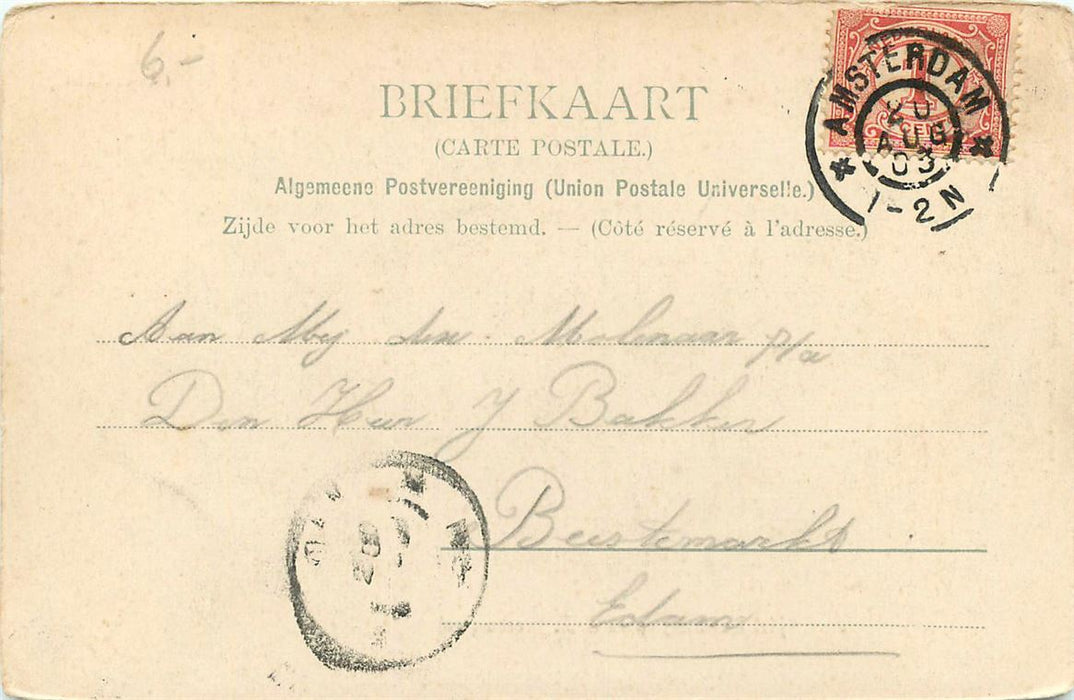 6.-
BRIEFKAART
(CARTE POSTALE.)
Algemeene Postvereeniging (Union Postale Universelle.)
Zijde voor het adres bestemd. — (Côté réservé à l'adresse.)
AMSTERDAM
AUG
03
1-2 N
1
Aan Mej Molenaar p/a
Den Heer J Bakker
Beestemarkt
Edam